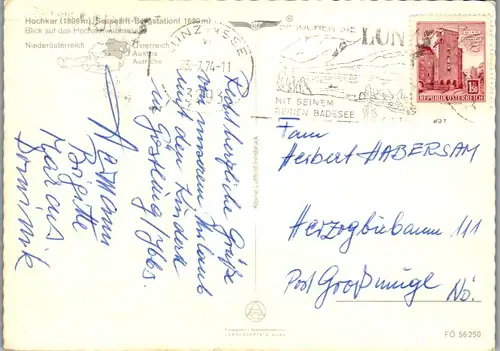 Hochkar (1809 m), Sessellift-Bergstation
Blick auf das Hochkar
Niederösterreich
Österreich
Austria
Autriche
LUNZ SEE
74-11
LUN
MIT SEINEM
BADESEE
REPUBLIK ÖSTERREICH
Recht herzliche Grüße
von unserem Urlaub
mit den Kindern
in Göstling/Ybbs.
Hermann
Brigitte
Markus
Dominik
Fam
Herbert HABERSAM
Herzogbierbaum 111
Post Großmugl Nö.
FÖ 56250